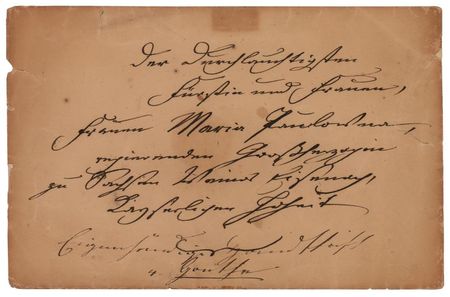 Der Durchlauchtigsten
Fürstin und Frauen,
Frauen Maria Paulowna,
regierenden Großherzogin
zu Sachsen Weimar Eisenach,
Kayserlichen Hoheit
Eigenhändige Handschrift
v. Goethe